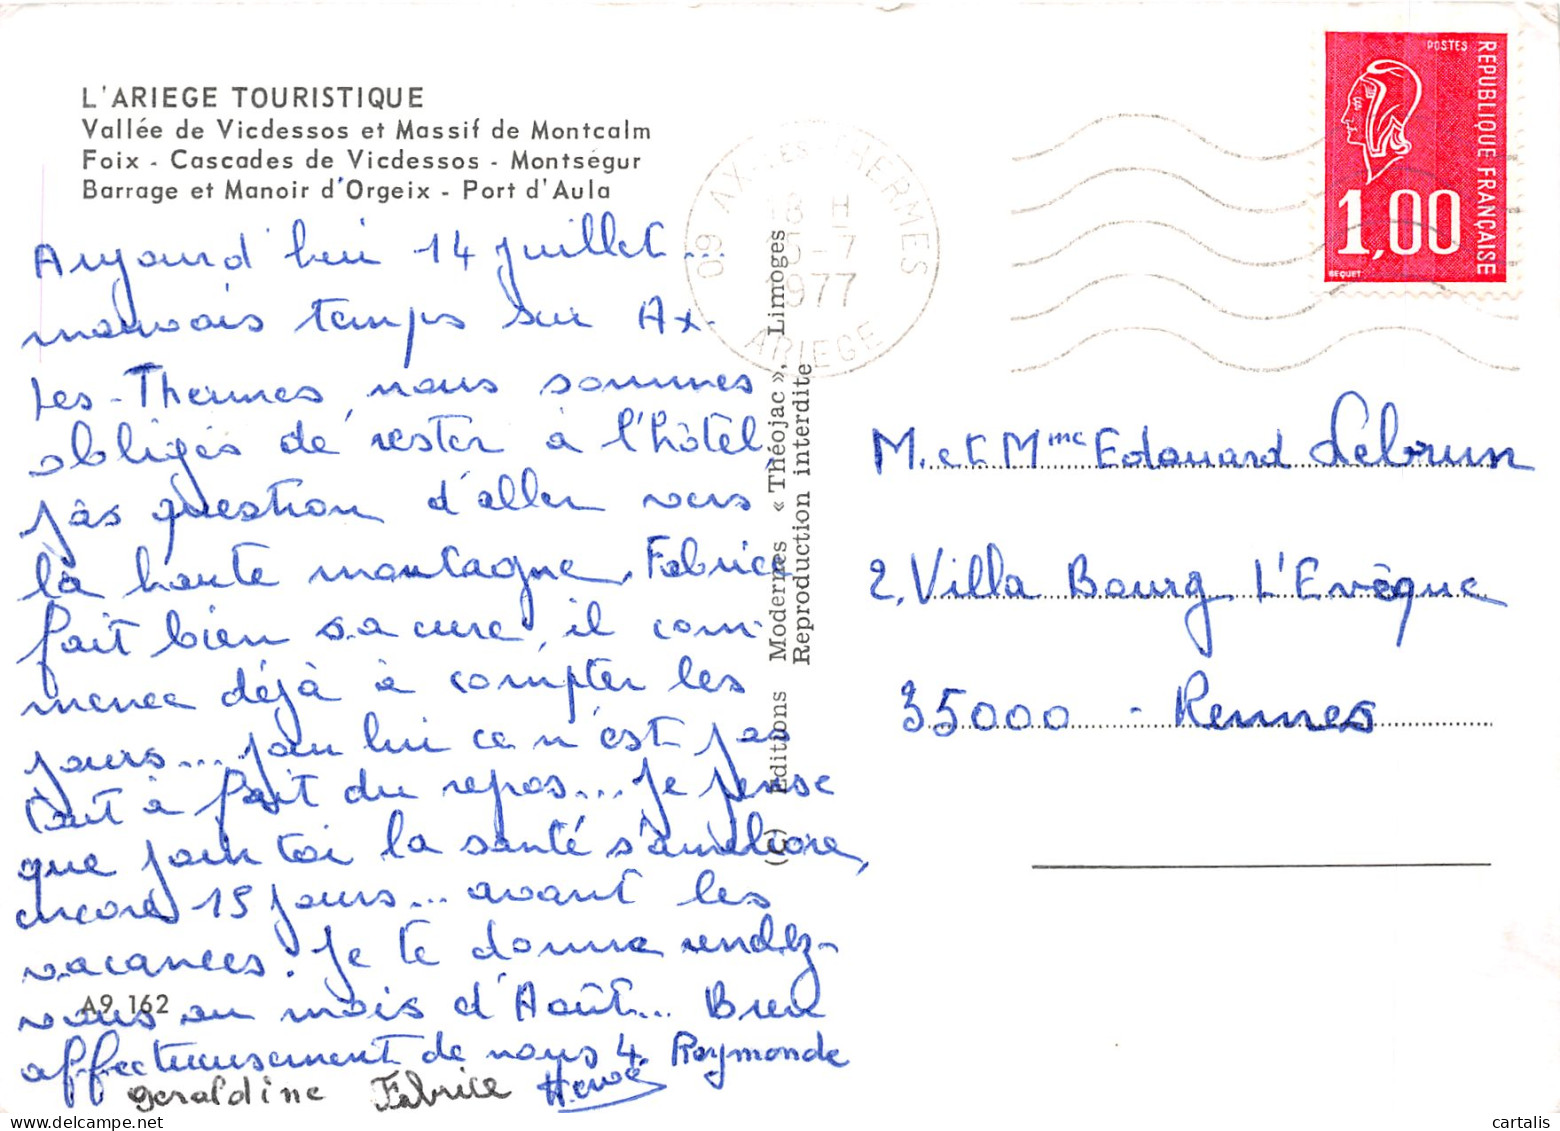 L'ARIEGE TOURISTIQUE
Vallée de Vicdessos et Massif de Montcalm
Foix - Cascades de Vicdessos - Montségur
Barrage et Manoir d'Orgeix - Port d'Aula
Aujourd'hui 14 juillet...
mauvais temps sur Ax-
Les-Thermes, nous sommes
obligés de rester à l'hôtel,
pas question d'aller vers
la haute montagne. Fabrice
fait bien sa cure, il com-
mence déjà à compter les
jours... pour lui ce n'est pas
tout à fait du repos... Je pense
que pour toi la santé s'améliore,
encore 15 jours... avant les
vacances. Je te donne rendez-
vous au mois d'Août... Bien
affectueusement de nous 4. Raymonde
geraldine Fabrice Hervé
A9 162
(C) Editions Modernes « Théojac », Limoges
Reproduction interdite
09 AX-LES-THERMES
18 H
15-7
1977
ARIEGE
POSTES
REPUBLIQUE FRANÇAISE
1,00
BEQUET
M. et Mme Edouard Lebrun
2, Villa Bourg L'Evêque
35000 - Rennes
cartalis